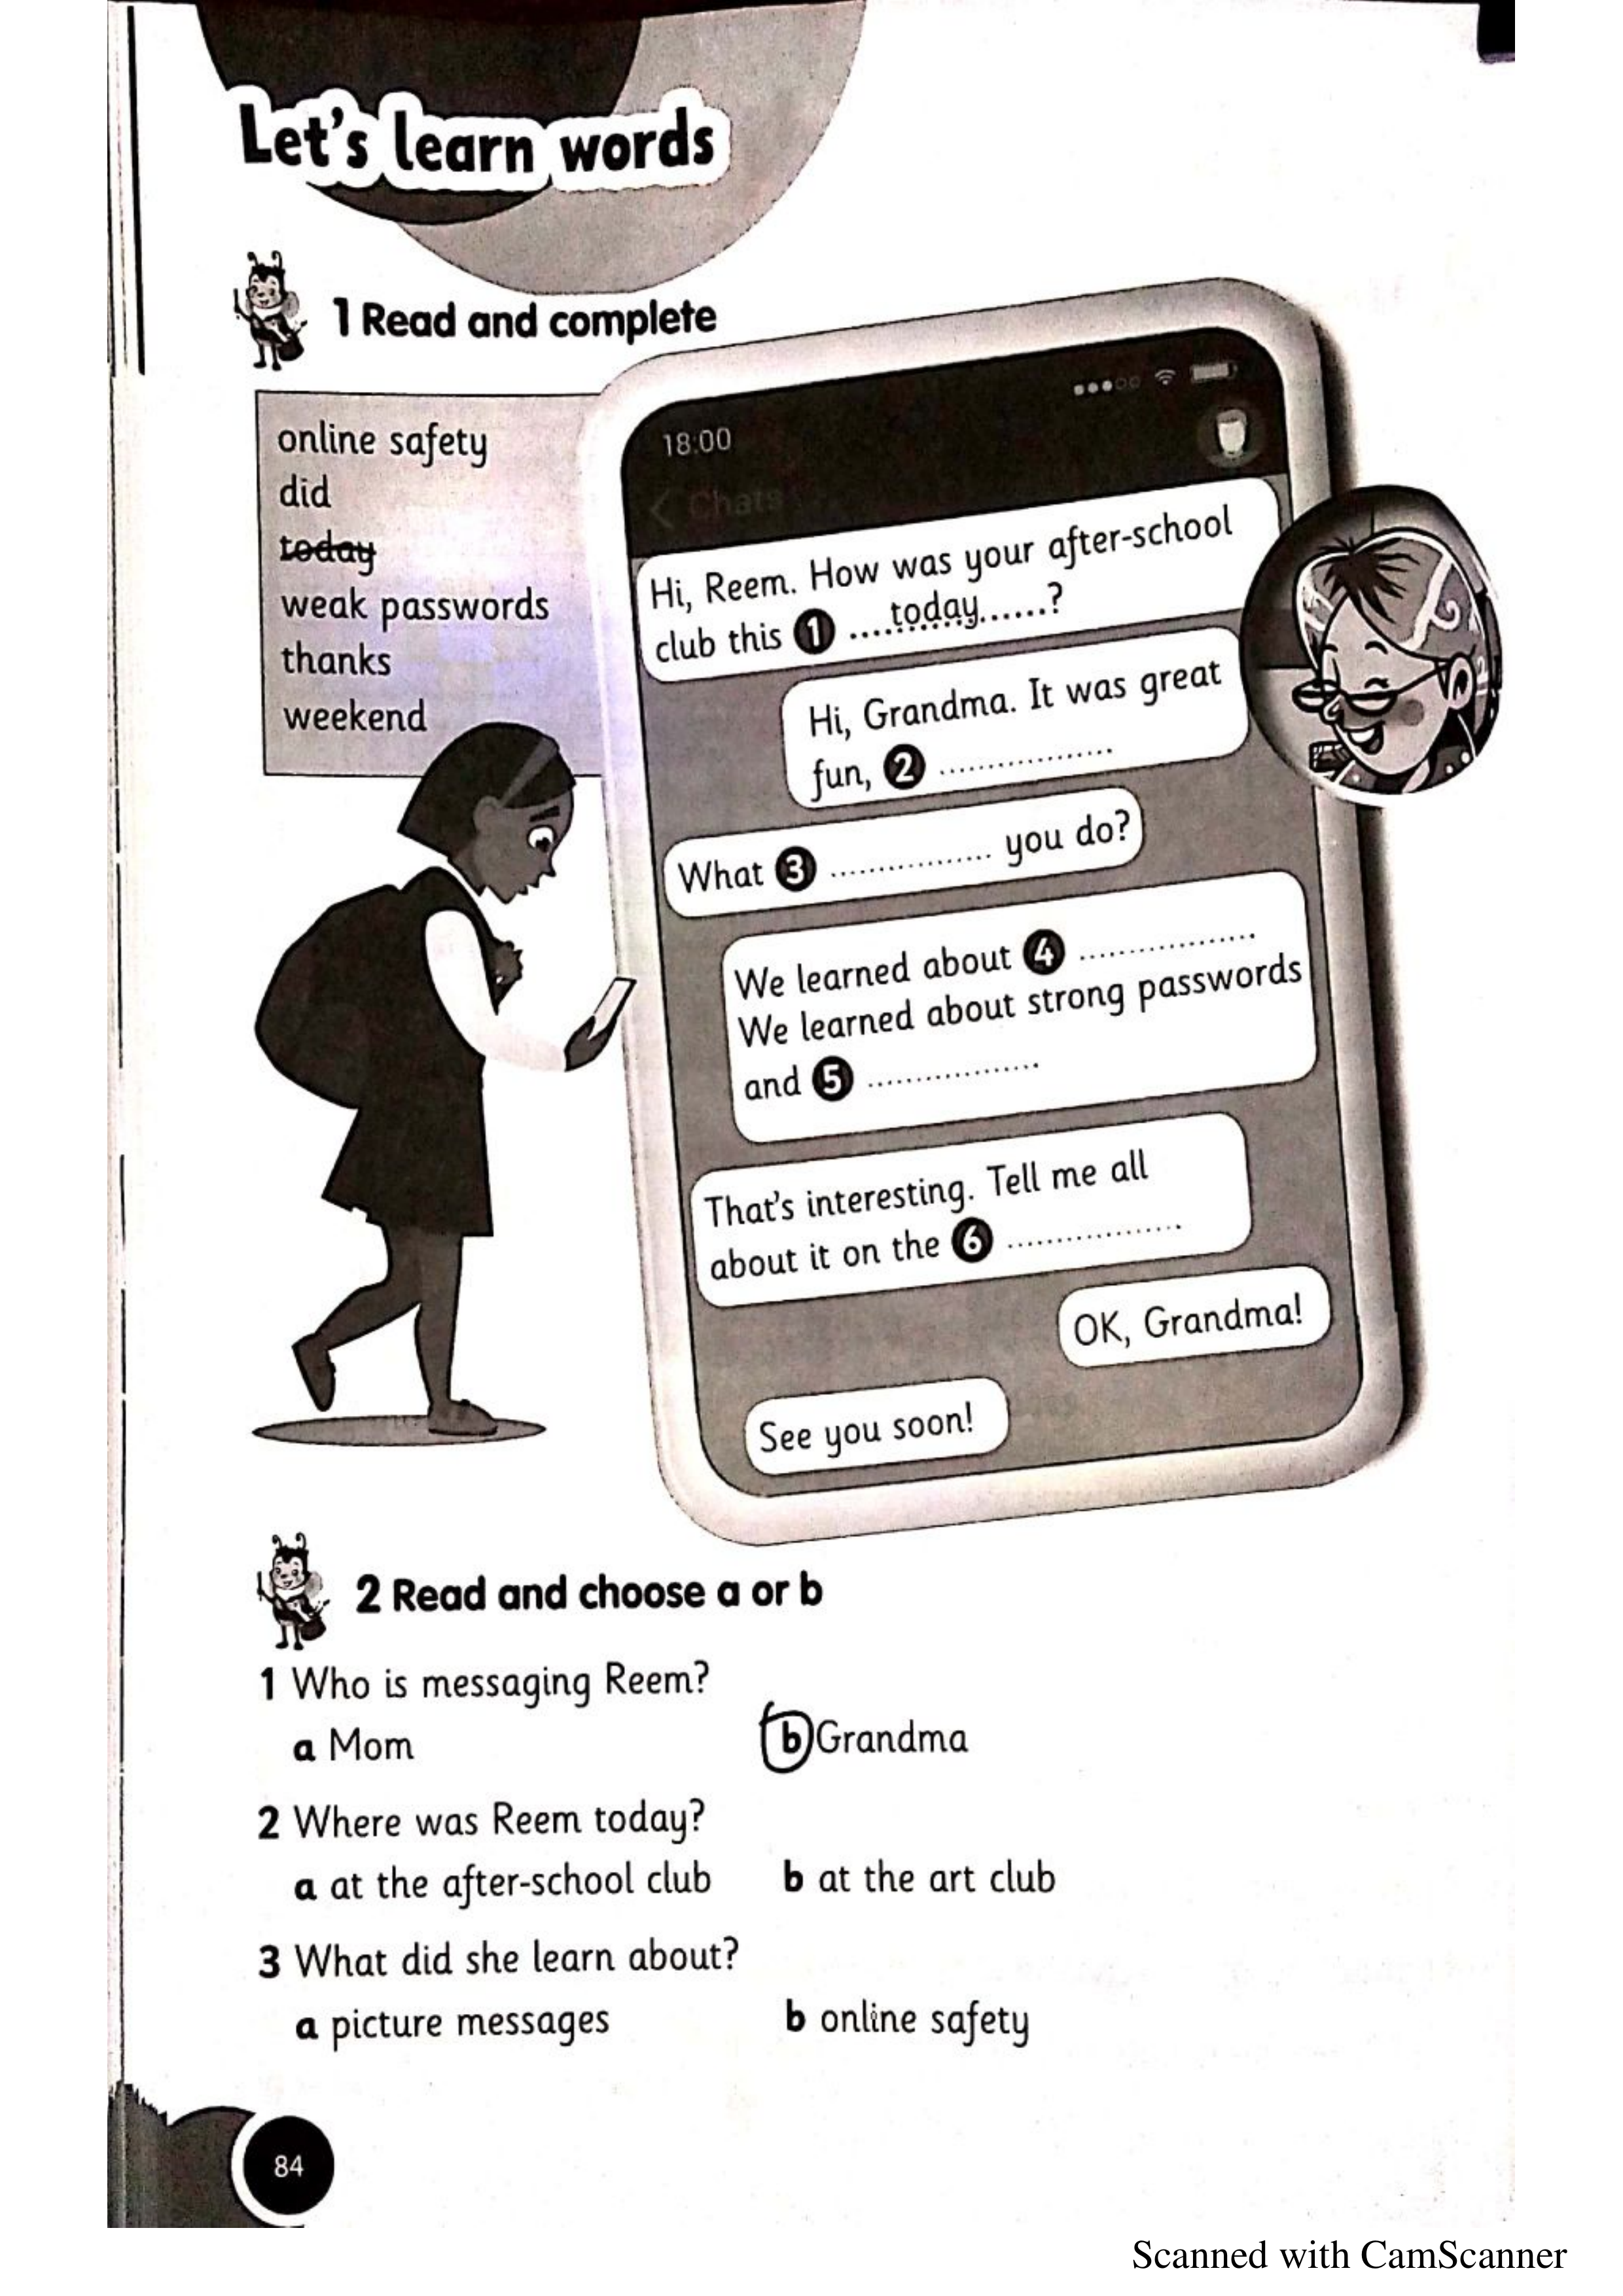 Let's learn words
1 Read and complete
online safety
did
today
weak passwords
thanks
weekend
18:00
< Chats
Hi, Reem. How was your after-school
club this 1 ....today......?
Hi, Grandma. It was great
fun, 2 ..................
What 3 ................. you do?
We learned about 4 ..................
We learned about strong passwords
and 5 ..................
That's interesting. Tell me all
about it on the 6 ..................
OK, Grandma!
See you soon!
2 Read and choose a or b
1 Who is messaging Reem?
a Mom b Grandma
2 Where was Reem today?
a at the after-school club b at the art club
3 What did she learn about?
a picture messages b online safety
84
Scanned with CamScanner